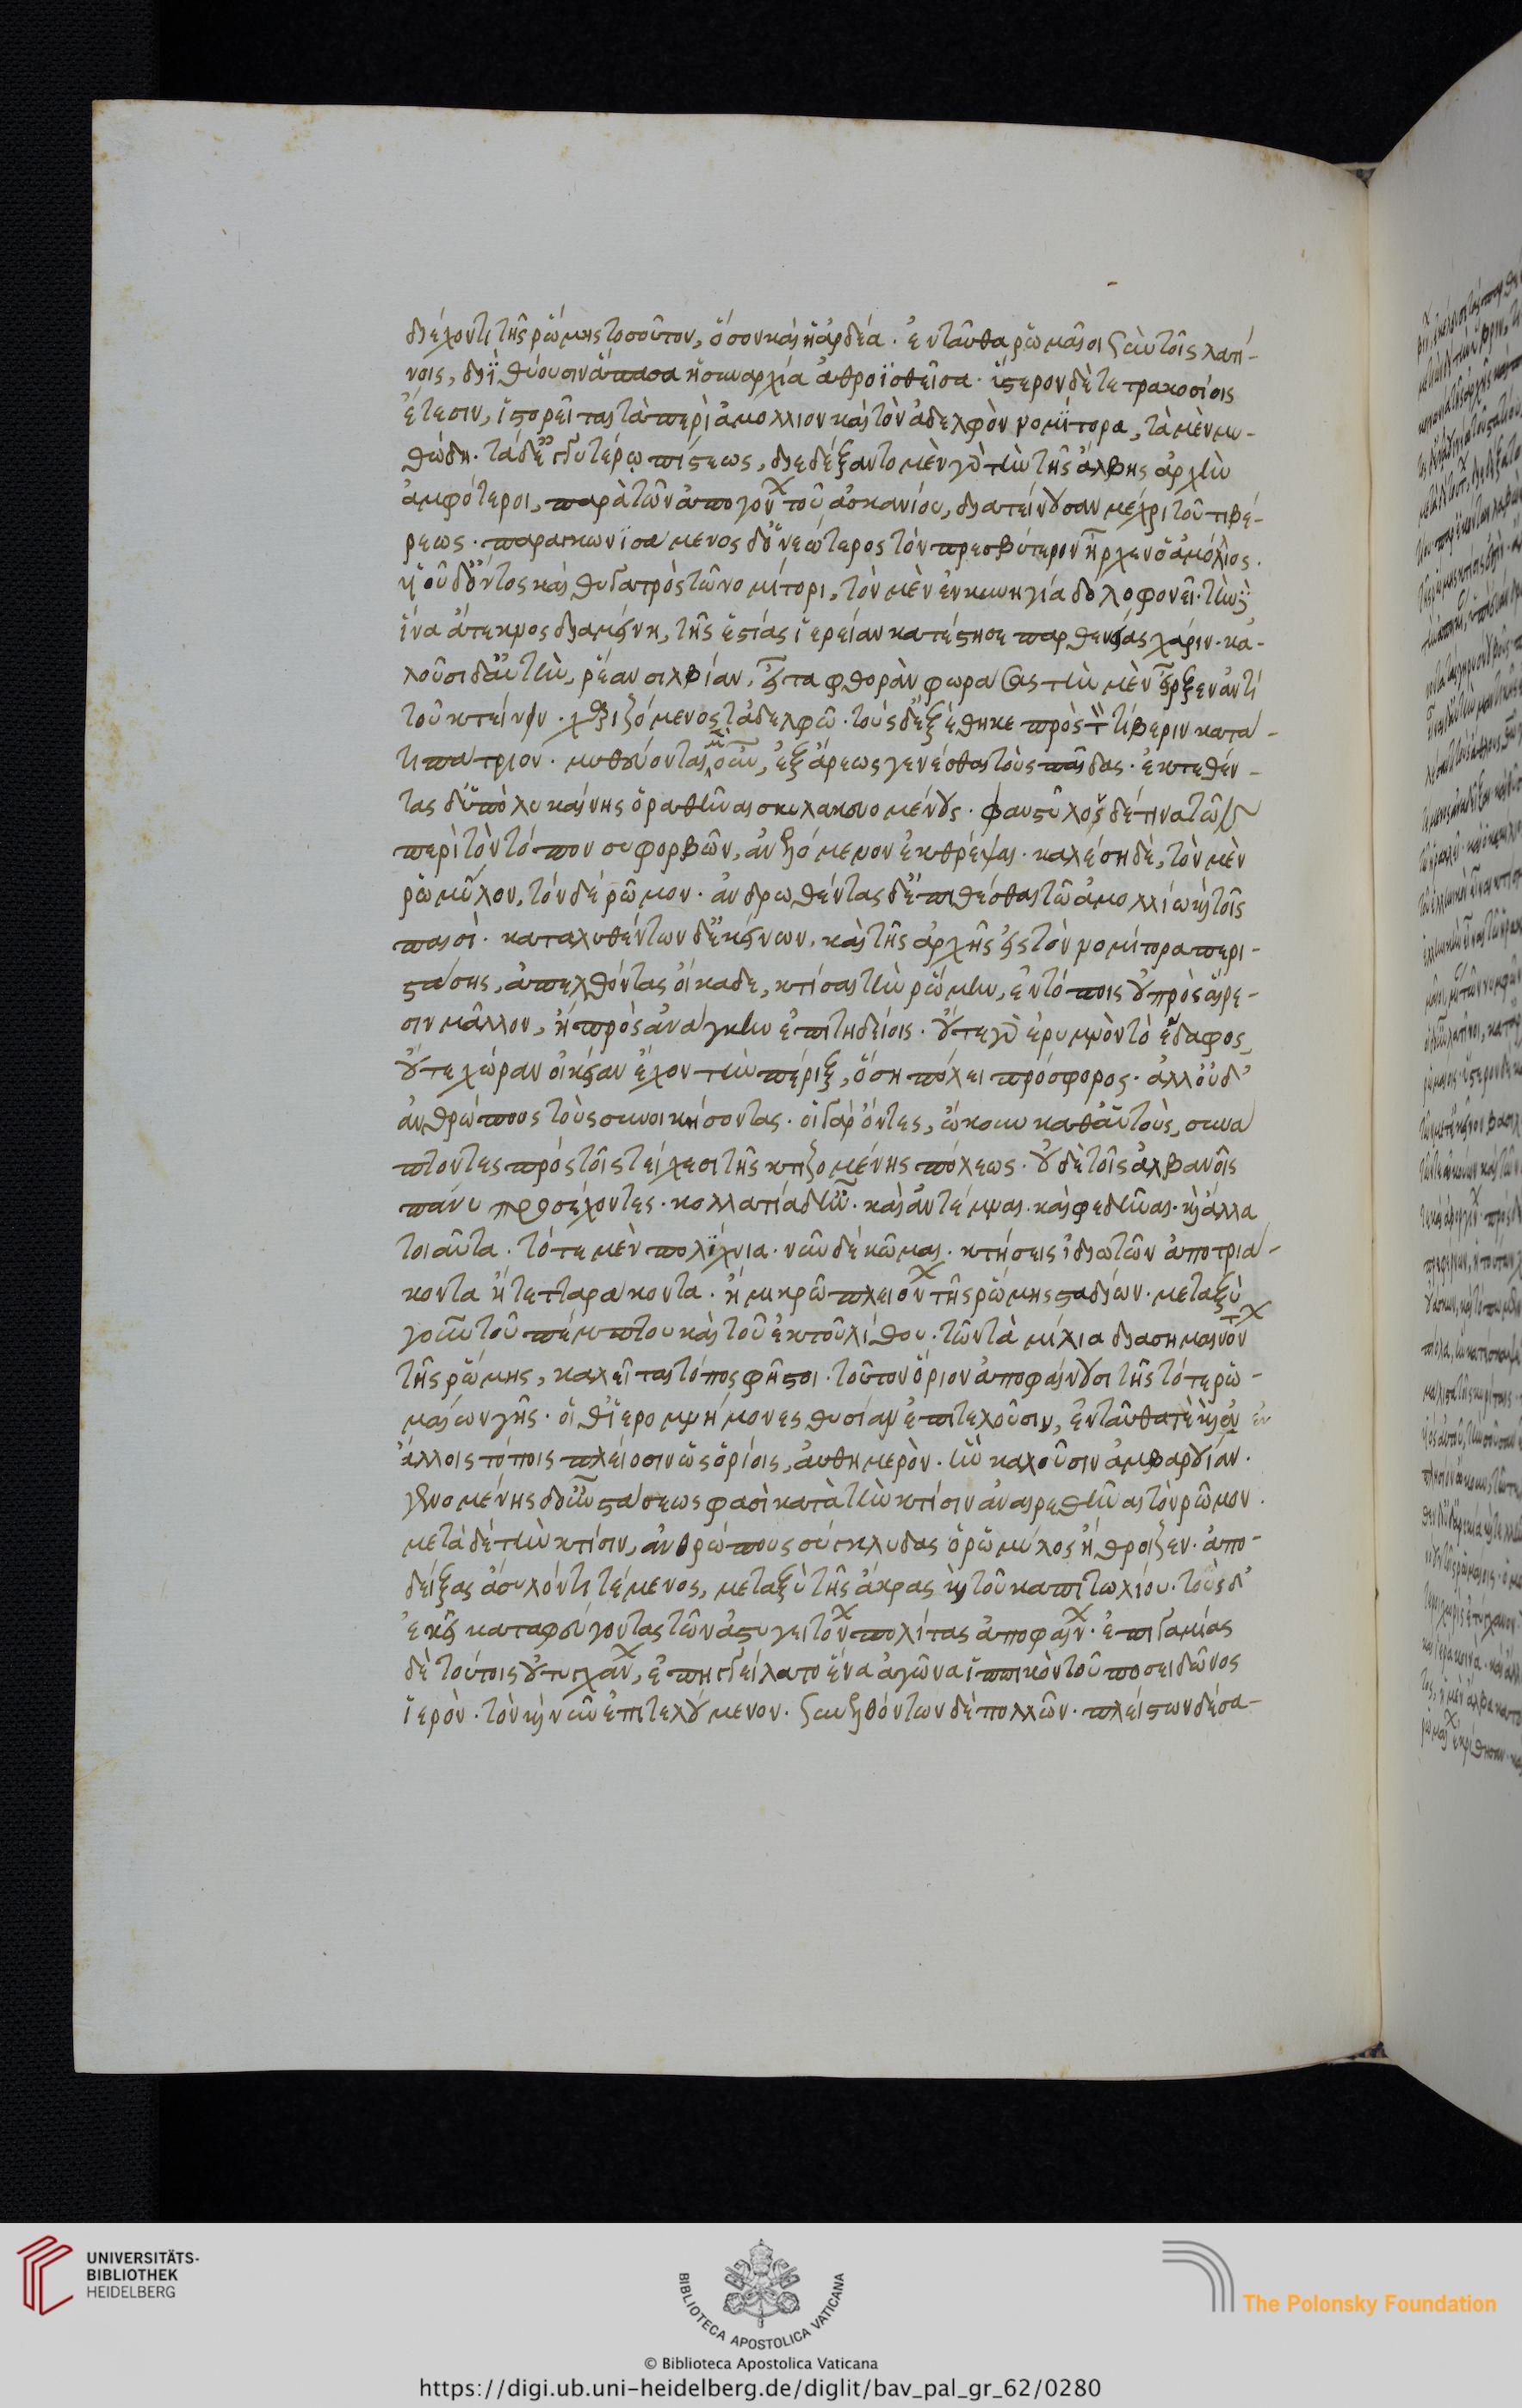 διέχοντι τῆς ῥώμης τοσοῦτον, ὅσον καὶ ἡ ἀρδέα. ἐνταῦθα ῥωμαῖοι σὺν τοῖς λατί-
νοις, διὶ θύουσιν ἅπασα ἡ συναρχία ἀθροϊσθεῖσα. ὕστερον δὲ τετρακοσίοις
ἔτεσιν, ἱστορεῖται τὰ περὶ ἀμολλιον καὶ τὸν ἀδελφὸν νομίτορα, τὰ μὲν μυ-
θώδη. τὰ δ' ἐγγυτέρω πίστεως, διεδέξαντο μὲν γὰρ τὴν τῆς ἄλβης ἀρχὴν
ἀμφότεροι, παρὰ τῶν ἀπογόνων τοῦ ἀσκανίου, διατείνουσαν μέχρι τοῦ τιβέ-
ρεως. παραγκωνισάμενος δ' ὁ νεώτερος τὸν πρεσβύτερον ἦρχεν ὁ ἀμόλιος.
υἱοῦ δ' ὄντος καὶ θυγατρὸς τῶ νομίτορι, τὸν μὲν ἐν κυνηγία δολοφονεῖ. τὴν δὲ
ἵνα ἄτεκνος διαμείνη, τῆς ἑστίας ἱερείαν κατέστησε παρθενείας χάριν. κα-
λοῦσι δ' αὐτὴν, ῥέαν σιλβίαν, εἶτα φθορὰν φωράσας τὴν μὲν εἶρξεν ἀντὶ
τοῦ κτείνειν. χαριζόμενος τἀδελφῶ. τοὺς δ' ἐξέθηκε πρὸς τὸν τίβεριν κατα-
τι πατριον. μυθεύονται μὲν οὖν, ἐξ ἄρεως γενέσθαι τοὺς παῖδας. ἐκτεθέν-
τας δ' ὑπὸ λυκαίνης ὁραθῆναι σκυλακευομένους. φαυστύλος δέ τινα τῶν
περὶ τὸν τόπον συφορβῶν, ἀνελόμενον ἐκθρέψαι. καλέση δὲ, τὸν μὲν
ῥωμύλον, τὸν δὲ ῥῶμον. ἀνδρωθέντας δ' ἐπιθέσθαι τῶ ἀμολλίω καὶ τοῖς
παισὶ. καταλυθέντων δ' ἐκείνων, καὶ τῆς ἀρχῆς εἰς τὸν νομίτορα περι-
στάσης, ἀπελθόντας οἴκαδε, κτίσαι τὴν ῥώμην, ἐν τόποις οὐ πρὸς αἵρε-
σιν μᾶλλον, ἢ πρὸς ἀνάγκην ἐπιτηδείοις. οὔτε γὰρ ἐρυμνὸν τὸ ἔδαφος,
οὔτε χώραν οἰκείαν ἔχον τὴν πέριξ, ὅση πόλει πρόσφορος. ἀλλ' οὐδ'
ἀνθρώπους τοὺς συνοικήσοντας. οἱ γὰρ ὄντες, ᾤκουν καθ' αὑτοὺς, συνά
πτοντες πρὸς τοῖς τείχεσι τῆς κτιζομένης πόλεως. οὐδὲ τοῖς ἀλβανοῖς
πάνυ προσέχοντες. κολλατία δ' ἦν. καὶ ἀντέμναι. καὶ φεδῆναι. καὶ ἄλλα
τοιαῦτα. τότε μὲν πολίχνια. νῦν δὲ κῶμαι. κτήσεις ἰδιωτῶν ἀπο τριά-
κοντα ἢ τετταράκοντα. ἢ μικρῶ πλειόνων τῆς ῥώμης σταδίων. μεταξὺ
γοῦν τοῦ πέμπτου καὶ τοῦ ἕκτου λίθου. τῶν τὰ μίλια διασημαινόντων
τῆς ῥώμης, καλεῖται τόπος φῆστοι. τοῦτον ὅριον ἀποφαίνουσι τῆς τότε ῥω-
μαίων γῆς. οἵ θ' ἱερομνήμονες θυσίαν ἐπιτελοῦσιν, ἐνταῦθά τε καὶ ἐν
ἄλλοις τόποις πλείοσιν ὡς ὁρίοις, αὐθημερὸν. ἣν καλοῦσιν ἀμβαρουίαν.
γενομένης δ' οὖν στάσεως φασὶ κατὰ τὴν κτίσιν ἀναιρεθῆναι τὸν ῥῶμον.
μετὰ δὲ τὴν κτίσιν, ἀνθρώπους σύγκλυδας ὁ ῥωμύλος ἤθροιζεν. ἀπο-
δείξας ἄσυλόν τι τέμενος, μεταξὺ τῆς ἄκρας καὶ τοῦ καπιτωλίου. τοὺς δ'
ἐκεῖ καταφεύγοντας τῶν ἀστυγειτόνων πολίτας ἀποφαίνων. ἐπιγαμίας
δὲ τούτοις οὐ τυγχάνων, ἐπηγγείλατο ἕνα ἀγῶνα ἱππικὸν τοῦ ποσειδῶνος
ἱερὸν. τὸν καὶ νῦν ἐπιτελούμενον. συνελθόντων δὲ πολλῶν. πλείστων δὲ σα-
UNIVERSITÄTS-
BIBLIOTHEK
HEIDELBERG
BIBLIOTECA APOSTOLICA VATICANA
The Polonsky Foundation
© Biblioteca Apostolica Vaticana
https://digi.ub.uni-heidelberg.de/diglit/bav_pal_gr_62/0280